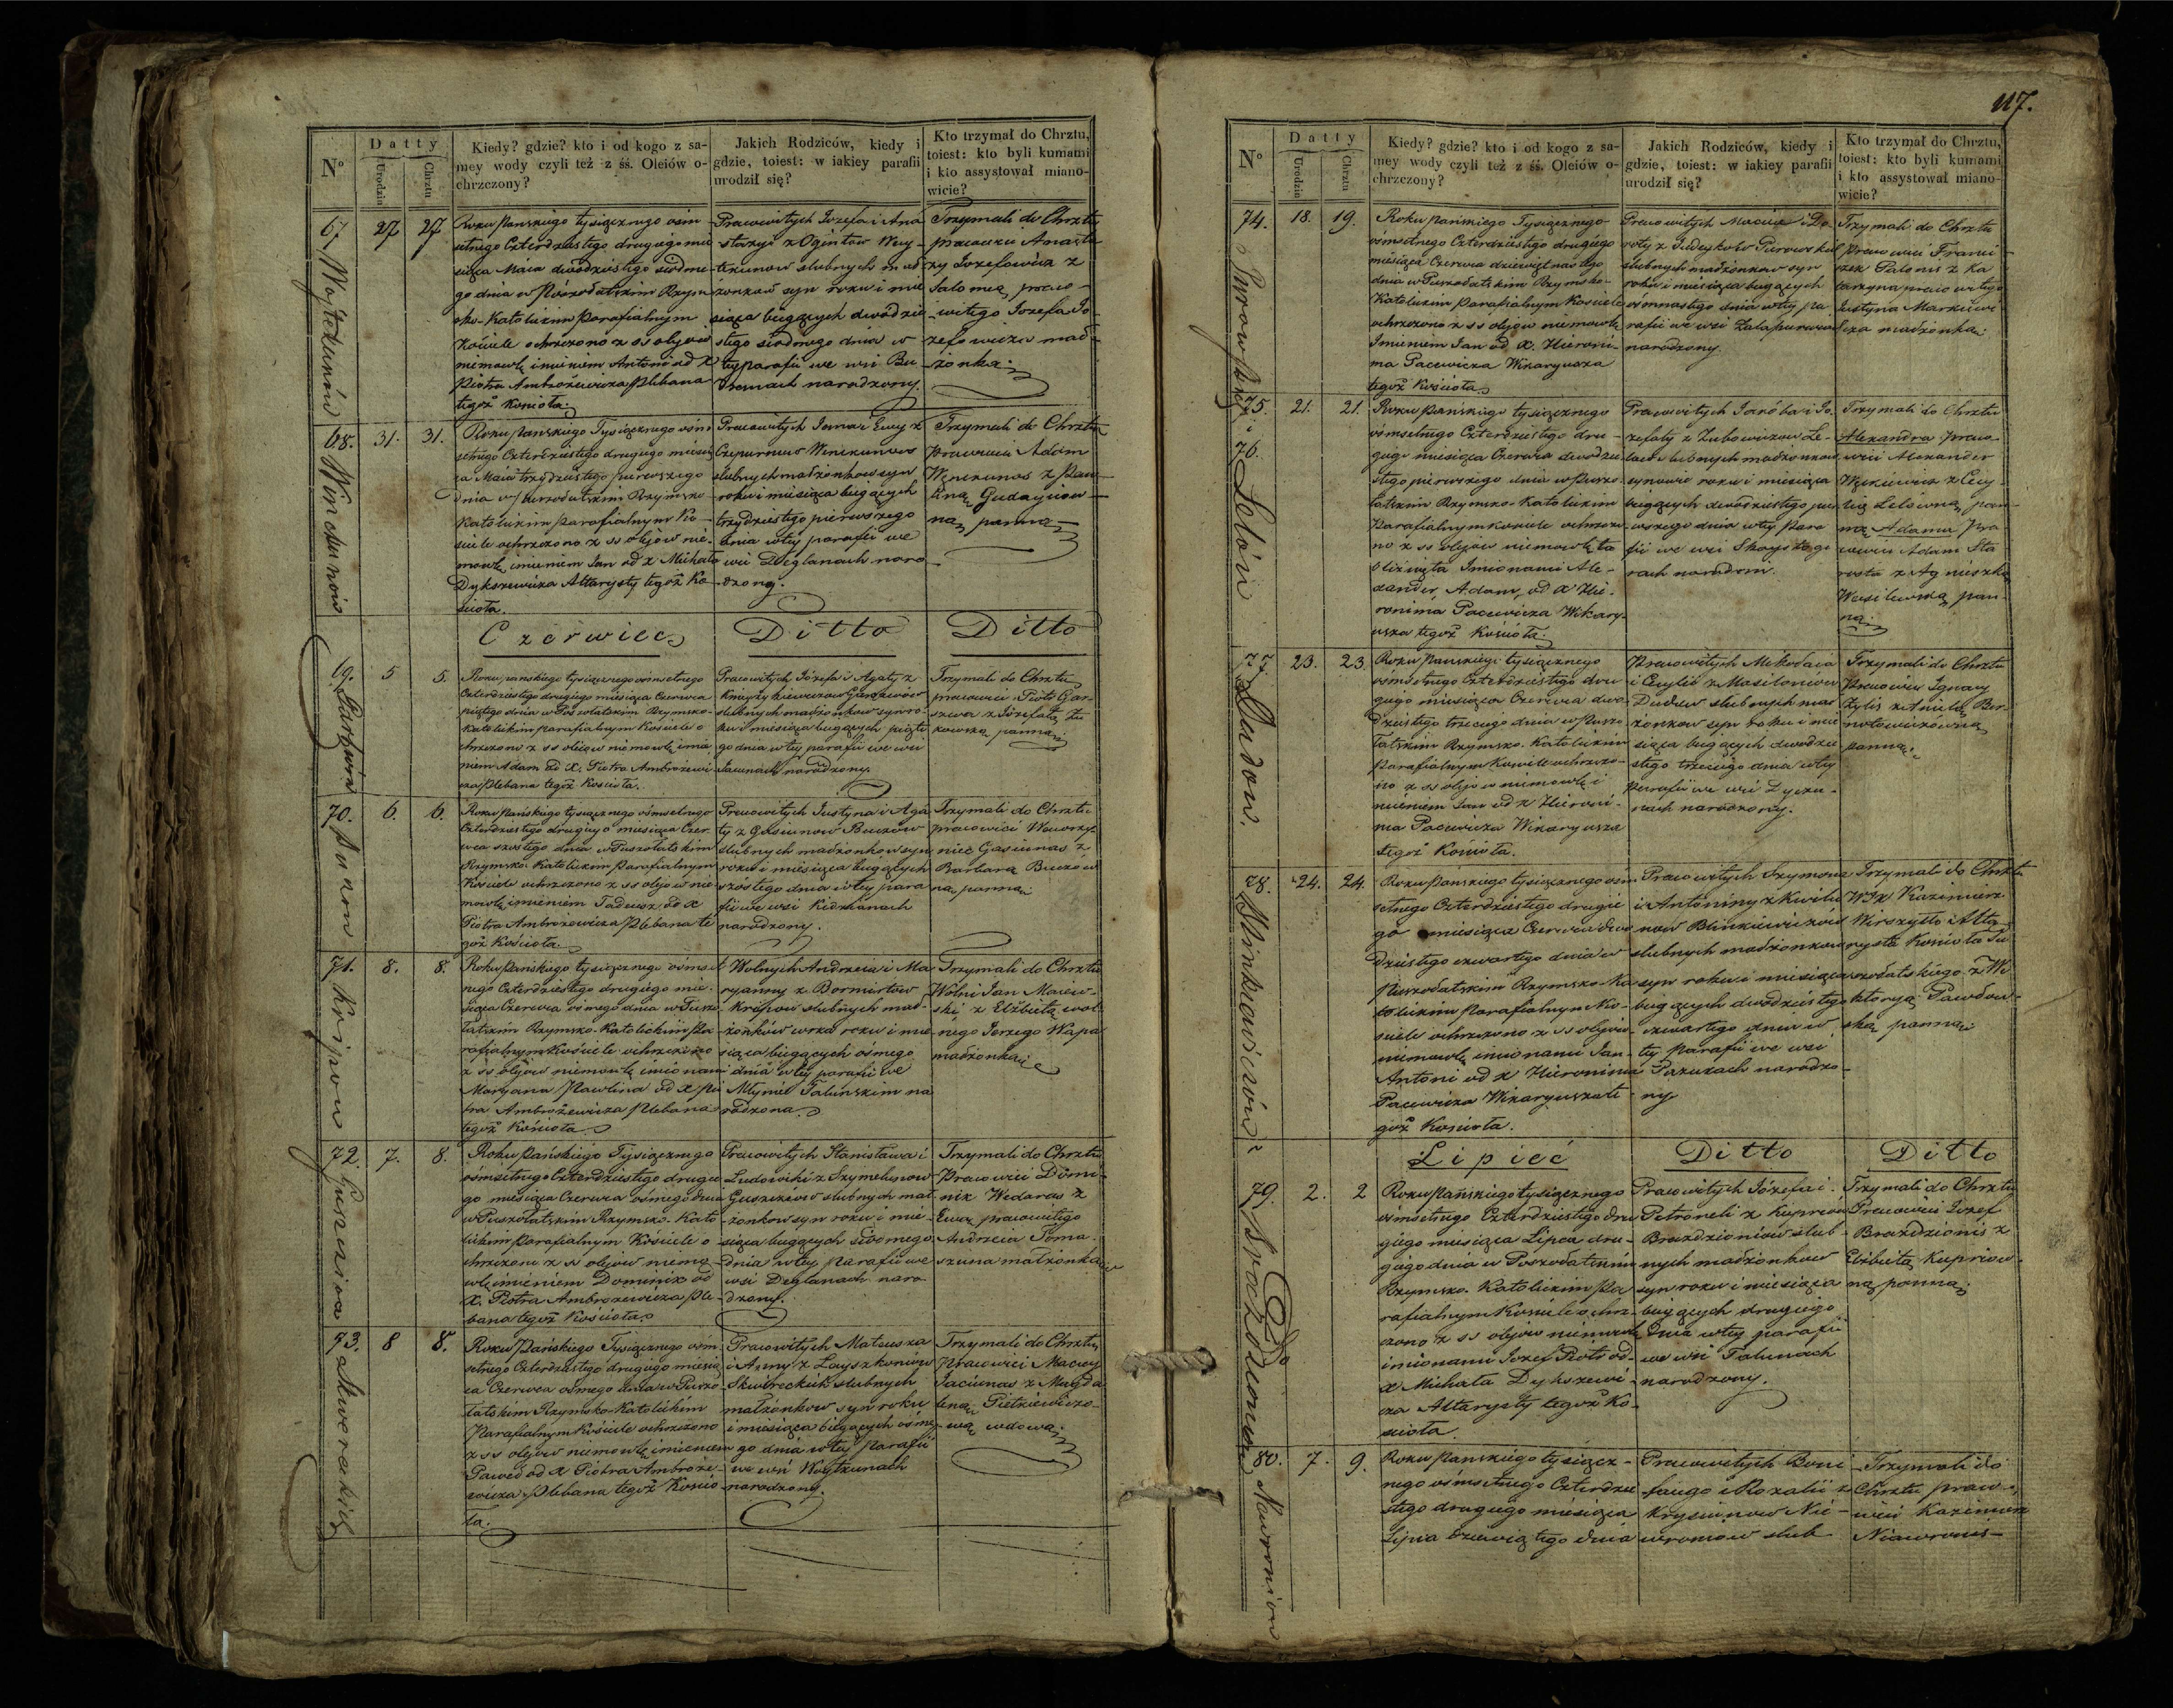 117.
Nº
Datty
Urodzin
Chrztu
Kiedy? gdzie? kto i od kogo z sa-
mey wody czyli też z śś. Oleiów o-
chrzczony?
Jakich Rodziców, kiedy i
gdzie, toiest: w iakiey parafii
urodził się?
Kto trzymał do Chrztu,
toiest: kto byli kumami
i kto assystował miano-
wicie?
67
27
27
Roku Panskiego tysiącznego osm
setnego Czterdziestego drugiego mie
siąca Maia dwodziestego siodme
go dnia w Poszołatskim Rzym
sko-Katolickim Parafialnym
Kościele ochrzczono z ss olejow
niemowlę imieniem Antoni od X
Piotra Ambrożewicza Plebana
tegoż Kościoła.
Pracowitych Jozefa i Ana
stazyi z Ogintow Woy-
tekunow slubnych mał
żonkow syn roku i mie
siąca bieżących dwodzie
stego siodmego dnia w
tey parafii we wsi
narodzony.
Trzymali do Chrztu
pracowici
Jozefowicz z
Salomeą praco-
witego Jozefa Jo-
zefowicza mał-
żonką
68.
31.
31.
Roku Panskiego Tysiącznego osm
setnego Czterdziestego drugiego miesią
ca Maia trzydziestego pierwszego
dnia w Puszołatskim Rzymsko-
Katolickim Parafialnym Ko-
ściele ochrzczono z ss olejow nie-
mowlę imieniem Jan od X Michała
Dykszewicza Altarysty tegoż Ko-
ścioła.
Pracowitych Jana i Ewy z
Czepurnow Winckunow
slubnych małżonkow syn
roku i miesiąca bieżących
trzydziestego pierwszego
dnia w tey parafii we
wsi Deglanach naro
dzony.
Trzymali do Chrztu
pracowici Adam
Wenckunas z Paw-
liną
ną panną
Czerwiec
Ditto
Ditto
69.
5
5.
Roku pańskiego tysiącznego osmsetnego
Czterdziestego drugiego miesiąca Czerwca
piątego dnia w Poszołatskim Rzymsko-
Katolickim parafialnym Kościele o
chrzczono z ss olejow niemowlę imie
niem Adam od X. Piotra Ambrożewi
cza Plebana tegoż Kościoła.
Pracowitych Józefa i Agaty z
slubnych małżonkow syn ro-
ku i miesiąca bieżących piąte
go dnia w tey parafii we wsi
narodzony.
Trzymali do Chrztu
pracowici Piotr Gar-
szwa z Józefatą Żu
kowską panną
70.
6.
6.
Roku Pańskiego tysiącznego osmsetnego
Czterdziestego drugiego miesiąca Czer
wca szostego dnia w Puszołatskim
Rzymsko-Katolickim Parafialnym
Kościele ochrzczono z ss olejow nie
mowlę imieniem Tadeusz od X
Piotra Ambrożewicza Plebana te
goż Kościoła
Pracowitych Justyna i Aga
ty z Gasiunow
slubnych małżonkow syn
roku i miesiąca bieżących
szostego dnia w tey para
fii we wsi Kidzkanach
narodzony.
Trzymali do Chrztu
pracowici Wawrzy-
niec Gasiunas z
Barbarą
ną panną
71.
8.
8.
Roku Pańskiego tysiącznego ośmset
nego Czterdziestego drugiego mie-
siąca Czerwca osmego dnia w Puszo
łatskim Rzymsko-Katolickim Pa
rafialnym Kościele ochrzczono
z ss olejow niemowlę imionami
Maryana Pawlina od X Pio
tra Ambrożewicza Plebana
tegoż Kościoła
Wolnych Andrzeia i Ma
ryanny z Bormirtow
Kripow slubnych mał-
żonkow corka roku i mie
siąca bieżących ośmego
dnia w tey parafii we
Młynie Talunskim na
rodzona.
Trzymali do Chrztu
Wolni Jan Maiew-
ski z Elżbietą wol-
nego Jerzego Wapa
małżonką
72.
7.
8.
Roku Pańskiego Tysiącznego
ośmsetnego Czterdziestego drugie
go miesiąca Czerwca ośmego dnia
w Puszołatskim Rzymsko-Kato
lickim Parafialnym Kościele o
chrzczono z ss olejow niemo
wlę imieniem Dominik od
X. Piotra Ambrożewicza Ple-
bana tegoż Kościoła.
Pracowitych Stanisława i
Ludowiki z Szymelunow
slubnych mał
żonkow syn roku i mie-
siąca bieżących siodmego
dnia w tey parafii we
wsi Deglanach naro
dzony.
Trzymali do Chrztu
Pracowici Domi-
nik Wedaras z
Ewą pracowitego
Andrzeia Toma-
szuna małżonką
73.
8
8.
Roku Pańskiego Tysiącznego ośm
setnego Czterdziestego drugiego miesią
ca Czerwca ośmego dnia w Puszo
łatskim Rzymsko-Katolickim
Parafialnym Kościele ochrzczono
z ss olejow niemowlę imieniem
Paweł od X Piotra Ambroże-
wicza Plebana tegoż Kościo
ła.
Pracowitych Mateusza
i Anny z Łayszkonow
Skwireckich slubnych
małżonkow syn roku
i miesiąca bieżących ośme
go dnia w tey Parafii
we wsi Woytkunach
narodzony.
Trzymali do Chrztu
Pracowici Maciey
Jaciunas z Magda
leną Pietkiewiczo-
wą wdową
74.
18.
19.
Roku pańskiego Tysiącznego
ośmsetnego Czterdziestego drugiego
miesiąca Czerwca dziewiętnastego
dnia w Puszołatskim Rzymsko-
Katolickim Parafialnym Kościele
ochrzczono z ss olejow niemowlę
Imieniem Jan od X. Hieroni-
ma Pacewicza Wikaryusza
tegoż Kościoła
Pracowitych Macieia i Do-
roty z
slubnych małżonkow syn
roku i miesiąca bieżących
ośmnastego dnia w tey pa
rafii we wsi
narodzony
Trzymali do Chrztu
Pracowici Franci
szek Galonis z Ka
tarzyną pracowitego
Justyna Markiewi
cza małżonką
75.
i
76.
21.
21.
Roku pańskiego tysiącznego
ośmsetnego Czterdziestego dru-
giego miesiąca Czerwca dwodzie
stego pierwszego dnia w Puszo-
łatskim Rzymsko-Katolickim
Parafialnym Kościele ochrzczo
no z ss olejow niemowlęta
bliznięta Imionami Ale-
xander, Adam, od X Hie-
ronima Pacewicza Wikary-
usza tegoż Kościoła.
Pracowitych Jakóba i Jo
zefaty z Zubowiczow Le-
low slubnych małżonkow
synowie roku i miesiąca
bieżących dwodziestego pie
rwszego dnia w tey Para
fii we wsi
rach narodzeni.
Trzymali do Chrztu
Alexandra praco-
wici Alexander
z Cecy-
lią Lelowną pan-
ną Adama Pra
cowici Adam Sta
rosta z Agnieszką
Wasilewską pan-
ną
77.
Dudow.
23.
23.
Roku Panskiego tysiącznego
osmsetnego Czterdziestego dru
giego miesiąca Czerwca dwo-
dziestego trzeciego dnia w Puszo
łatskim Rzymsko-Katolickim
parafialnym Kosciele ochrzczo-
no z ss olejow niemowlę i
mieniem Jan od X Hieroni-
ma Pacewicza Wikaryusza
tegoż Kościoła.
Pracowitych Mikołaia
i Cecylii z Masilonów
Dudow slubnych mał
żonkow syn roku i mie
siąca bieżących dwodzie
stego trzeciego dnia w tey
parafii we wsi
nach narodzony.
Trzymali do Chrztu
Pracowici Ignacy
Żylis z Anielą Ber-
notowiczówną
panną
78.
24.
24.
Roku Pańskiego tysiącznego ośm
setnego Czterdziestego drugie
go miesiąca Czerwca dwo
dziestego czwartego dnia w
Puszołatskim Rzymsko-Ka
tolickim Parafialnym Ko-
sciele ochrzczono z ss olejow
niemowlę imionami Jan
Antoni od X Hieronima
Pacewicza Wikaryusza te
goż Kościoła.
Pracowitych Szymona
i Antoniny z
now Blinkiewiczów
slubnych małżonkow
syn roku i miesiąca
bieżących dwodziestego
czwartego dnia w
tey Parafii we wsi
Pazukach narodzo
ny
Trzymali do Chrztu
WJX Kazimierz
Mirszysło Alta-
rysta Kościoła Pu
szołatskiego z Wi
ktoryą Pawłow-
ską panną
Lipieć
Ditto
Ditto
79.
2.
2
Roku Pańskiego tysiącznego
ośmsetnego Czterdziestego dru
giego miesiąca Lipca dru-
giego dnia w Poszołatskim
Rzymsko-Katolickim Pa
rafialnym Kościele ochrz-
czono z ss olejów niemowlę
imionami Jozef Piotr od
X Michała Dykszewi-
cza Altarysty tegoż Ko-
scioła.
Pracowitych Józefa i
Petroneli z Kuprów
Brazdzioniow slub-
nych małżonkow
syn roku i miesiąca
bieżących drugiego
dnia w tey parafii
we wsi Talunach
narodzony.
Trzymali do Chrztu
Pracowici Jozef
Brazdzionis z
Elżbietą Kupriow-
ną panną
80.
7.
9.
Roku Panskiego tysiącz-
nego ośmsetnego Czterdzie
stego drugiego miesiąca
Lipca dziewiątego dnia
Pracowitych Boni
facego i Rozalii z
Krysiunow Nie-
wroniow slub
Trzymali do
Chrztu praco-
wici Kazimierz
Niawronis